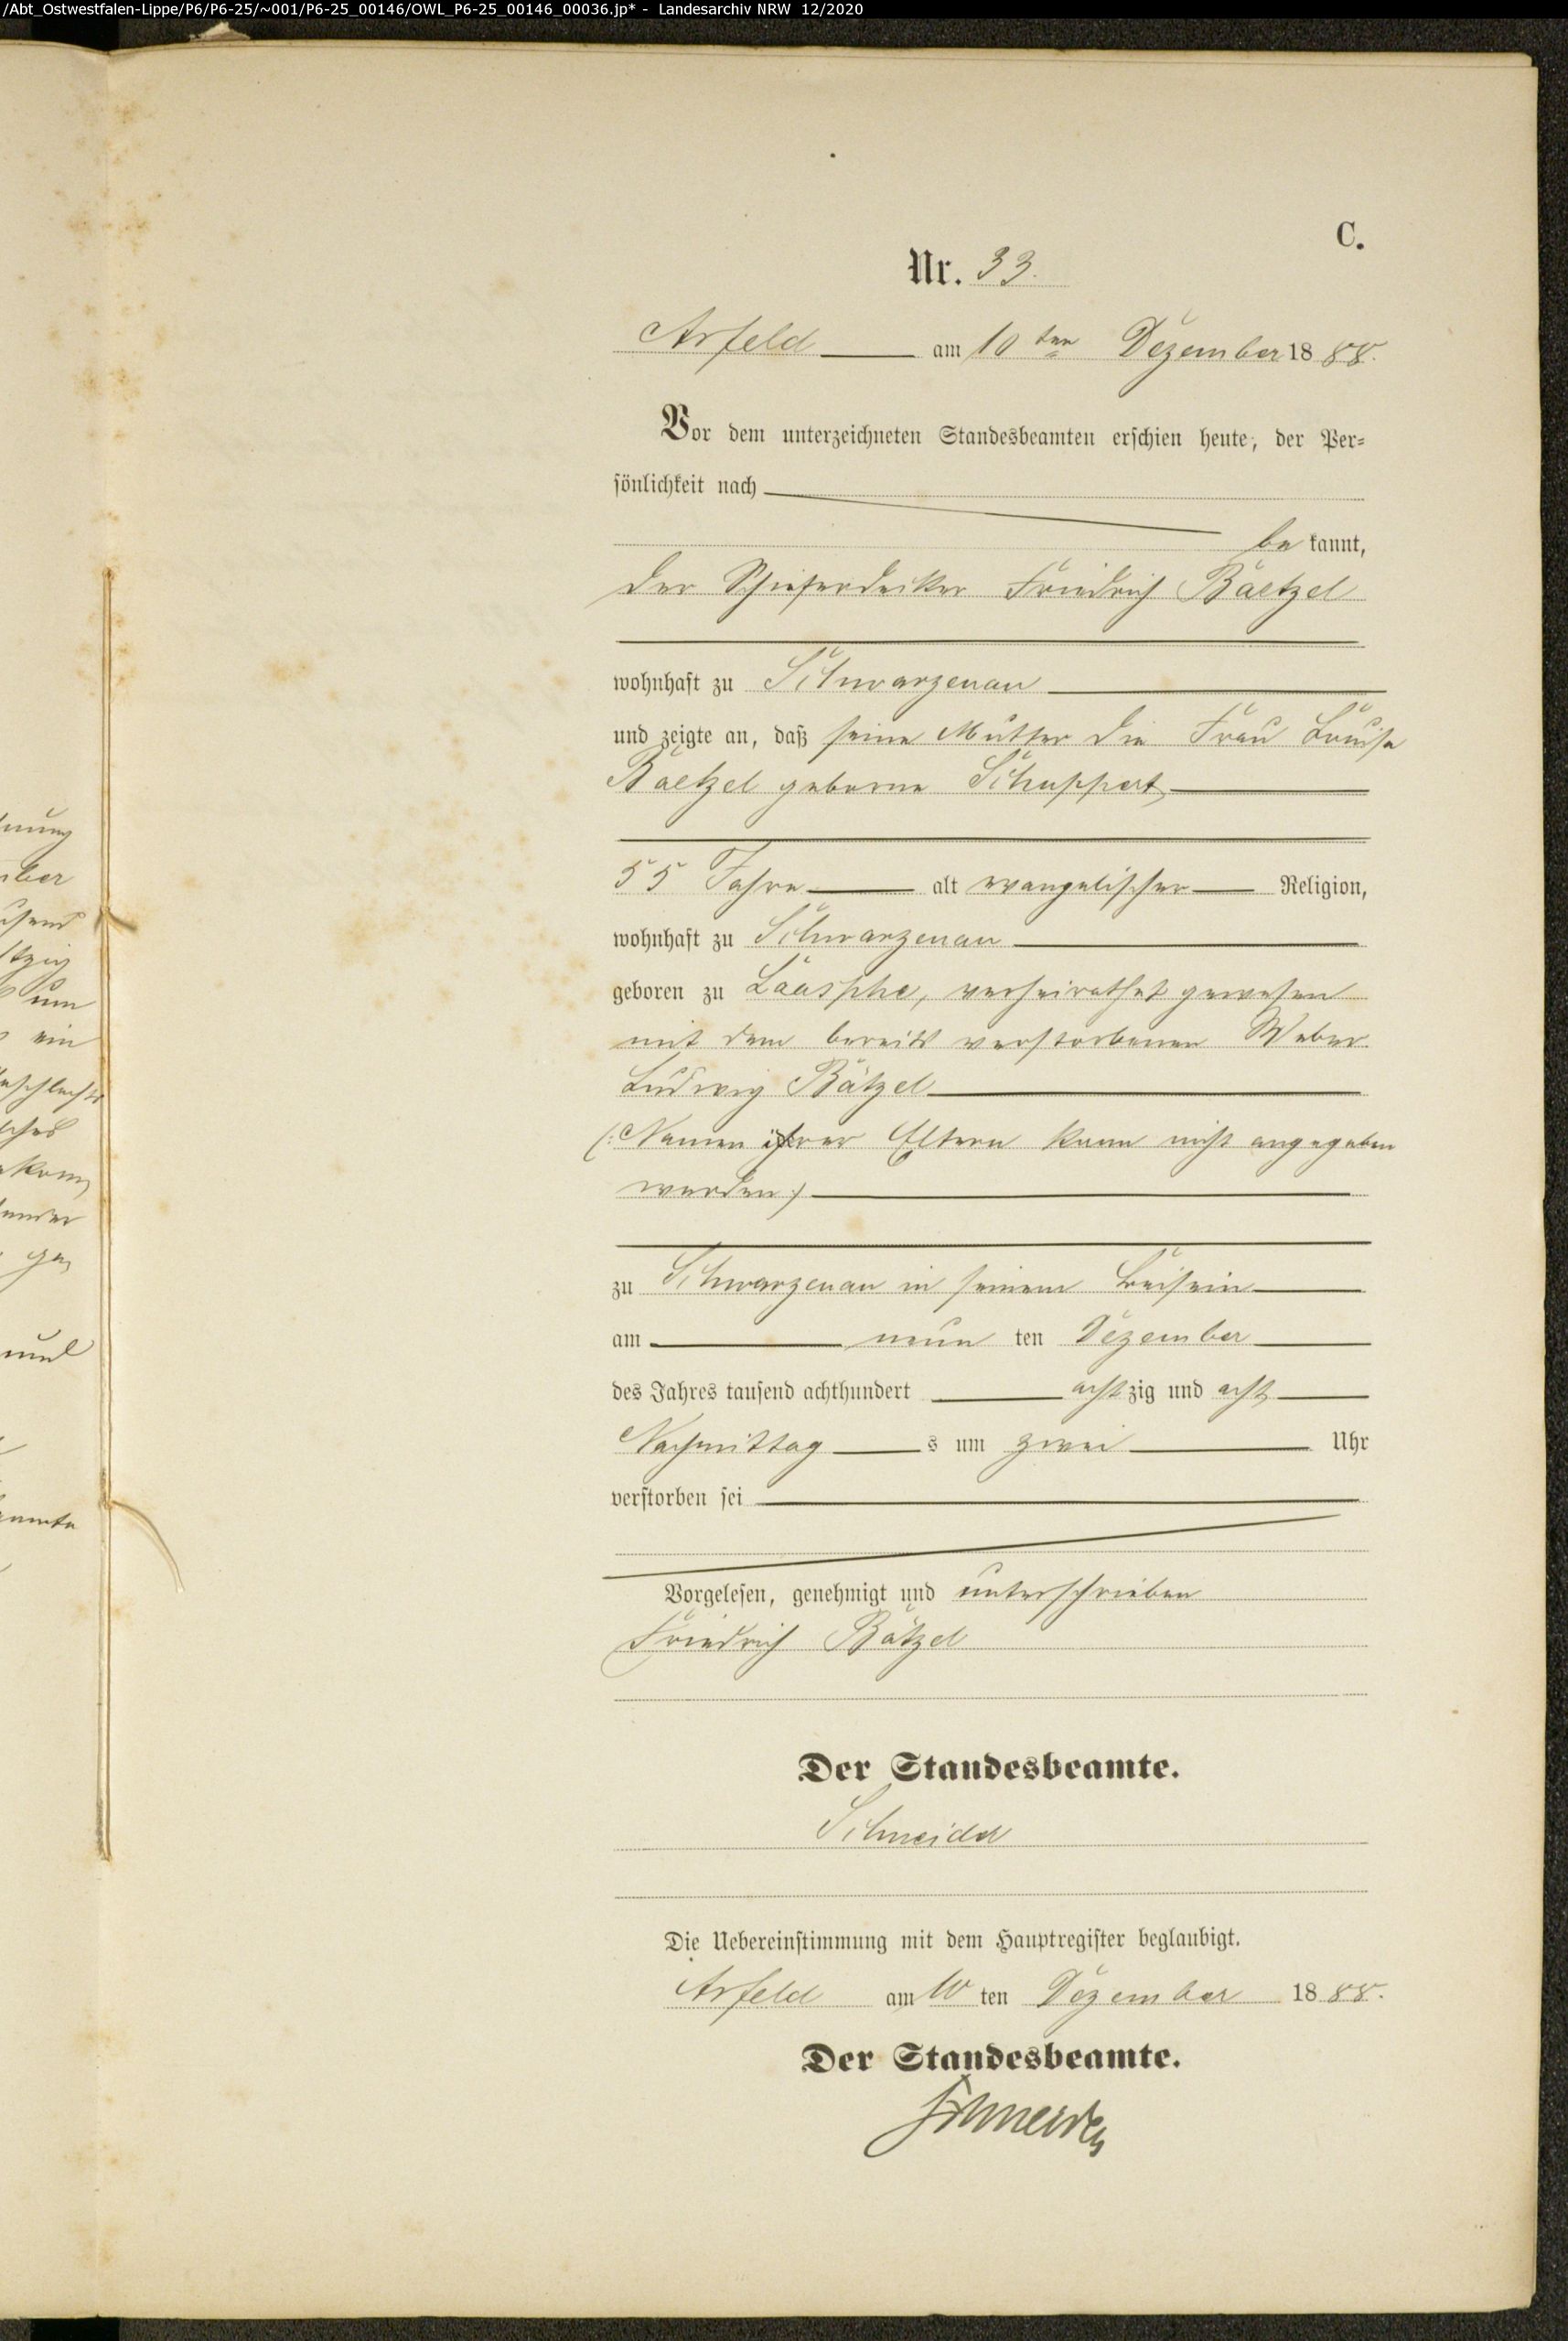 /Abt_Ostwestfalen-Lippe/P6/P6-25/~001/P6-25_00146/OWL_P6-25_00146_00036.jp* - Landesarchiv NRW 12/2020
C.
Nr. 33.
Arfeld am 10ten Dezember 1888.
Vor dem unterzeichneten Standesbeamten erschien heute, der Per-
sönlichkeit nach
be kannt,
der Schieferdecker Friedrich Baetzel
wohnhaft zu Schwarzenau
und zeigte an, daß seine Mutter die Frau Louise
Baetzel geborne Schuppert
55 Jahre alt evangelischer Religion,
wohnhaft zu Schwarzenau
geboren zu Laasphe, verheirathet gewesen
mit dem bereits verstorbenen Weber
Ludwig Bätzel
(: Namen ihrer Eltern kann nicht angegeben
werden :)
zu Schwarzenau in seinem Beisein
am neun ten Dezember
des Jahres tausend achthundert acht zig und acht
Nachmittag s um zwei Uhr
verstorben sei
Vorgelesen, genehmigt und unterschrieben
Friedrich Bätzel
Der Standesbeamte.
Die Uebereinstimmung mit dem Hauptregister beglaubigt.
Arfeld am 10 ten Dezember 1888.
Der Standesbeamte.
Schneider
nung
ein